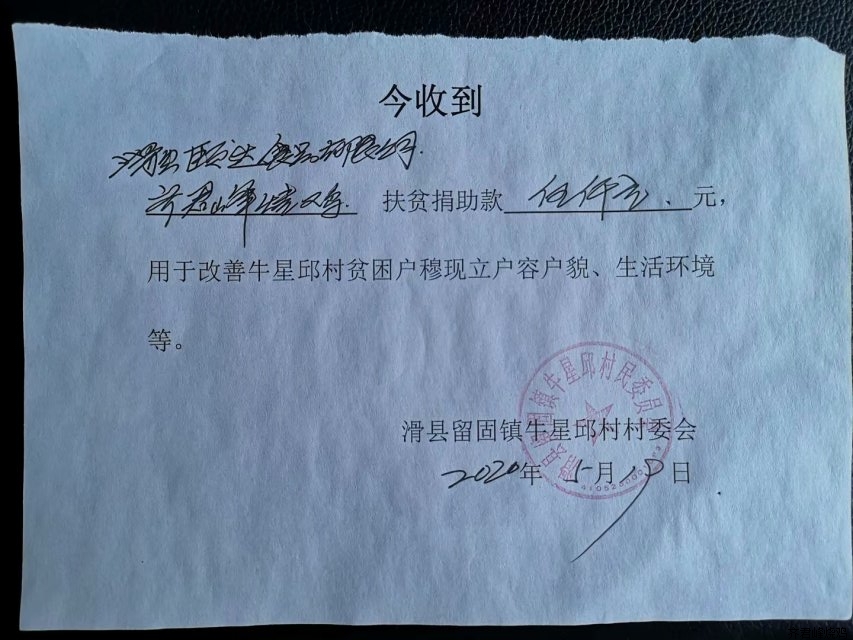 今收到
滑县颐达食品有限公司
扶贫捐助款 伍仟元、元，
用于改善牛星邱村贫困户穆现立户容户貌、生活环境
等。
滑县留固镇牛星邱村民委员会
滑县留固镇牛星邱村村委会
2020年5月19日